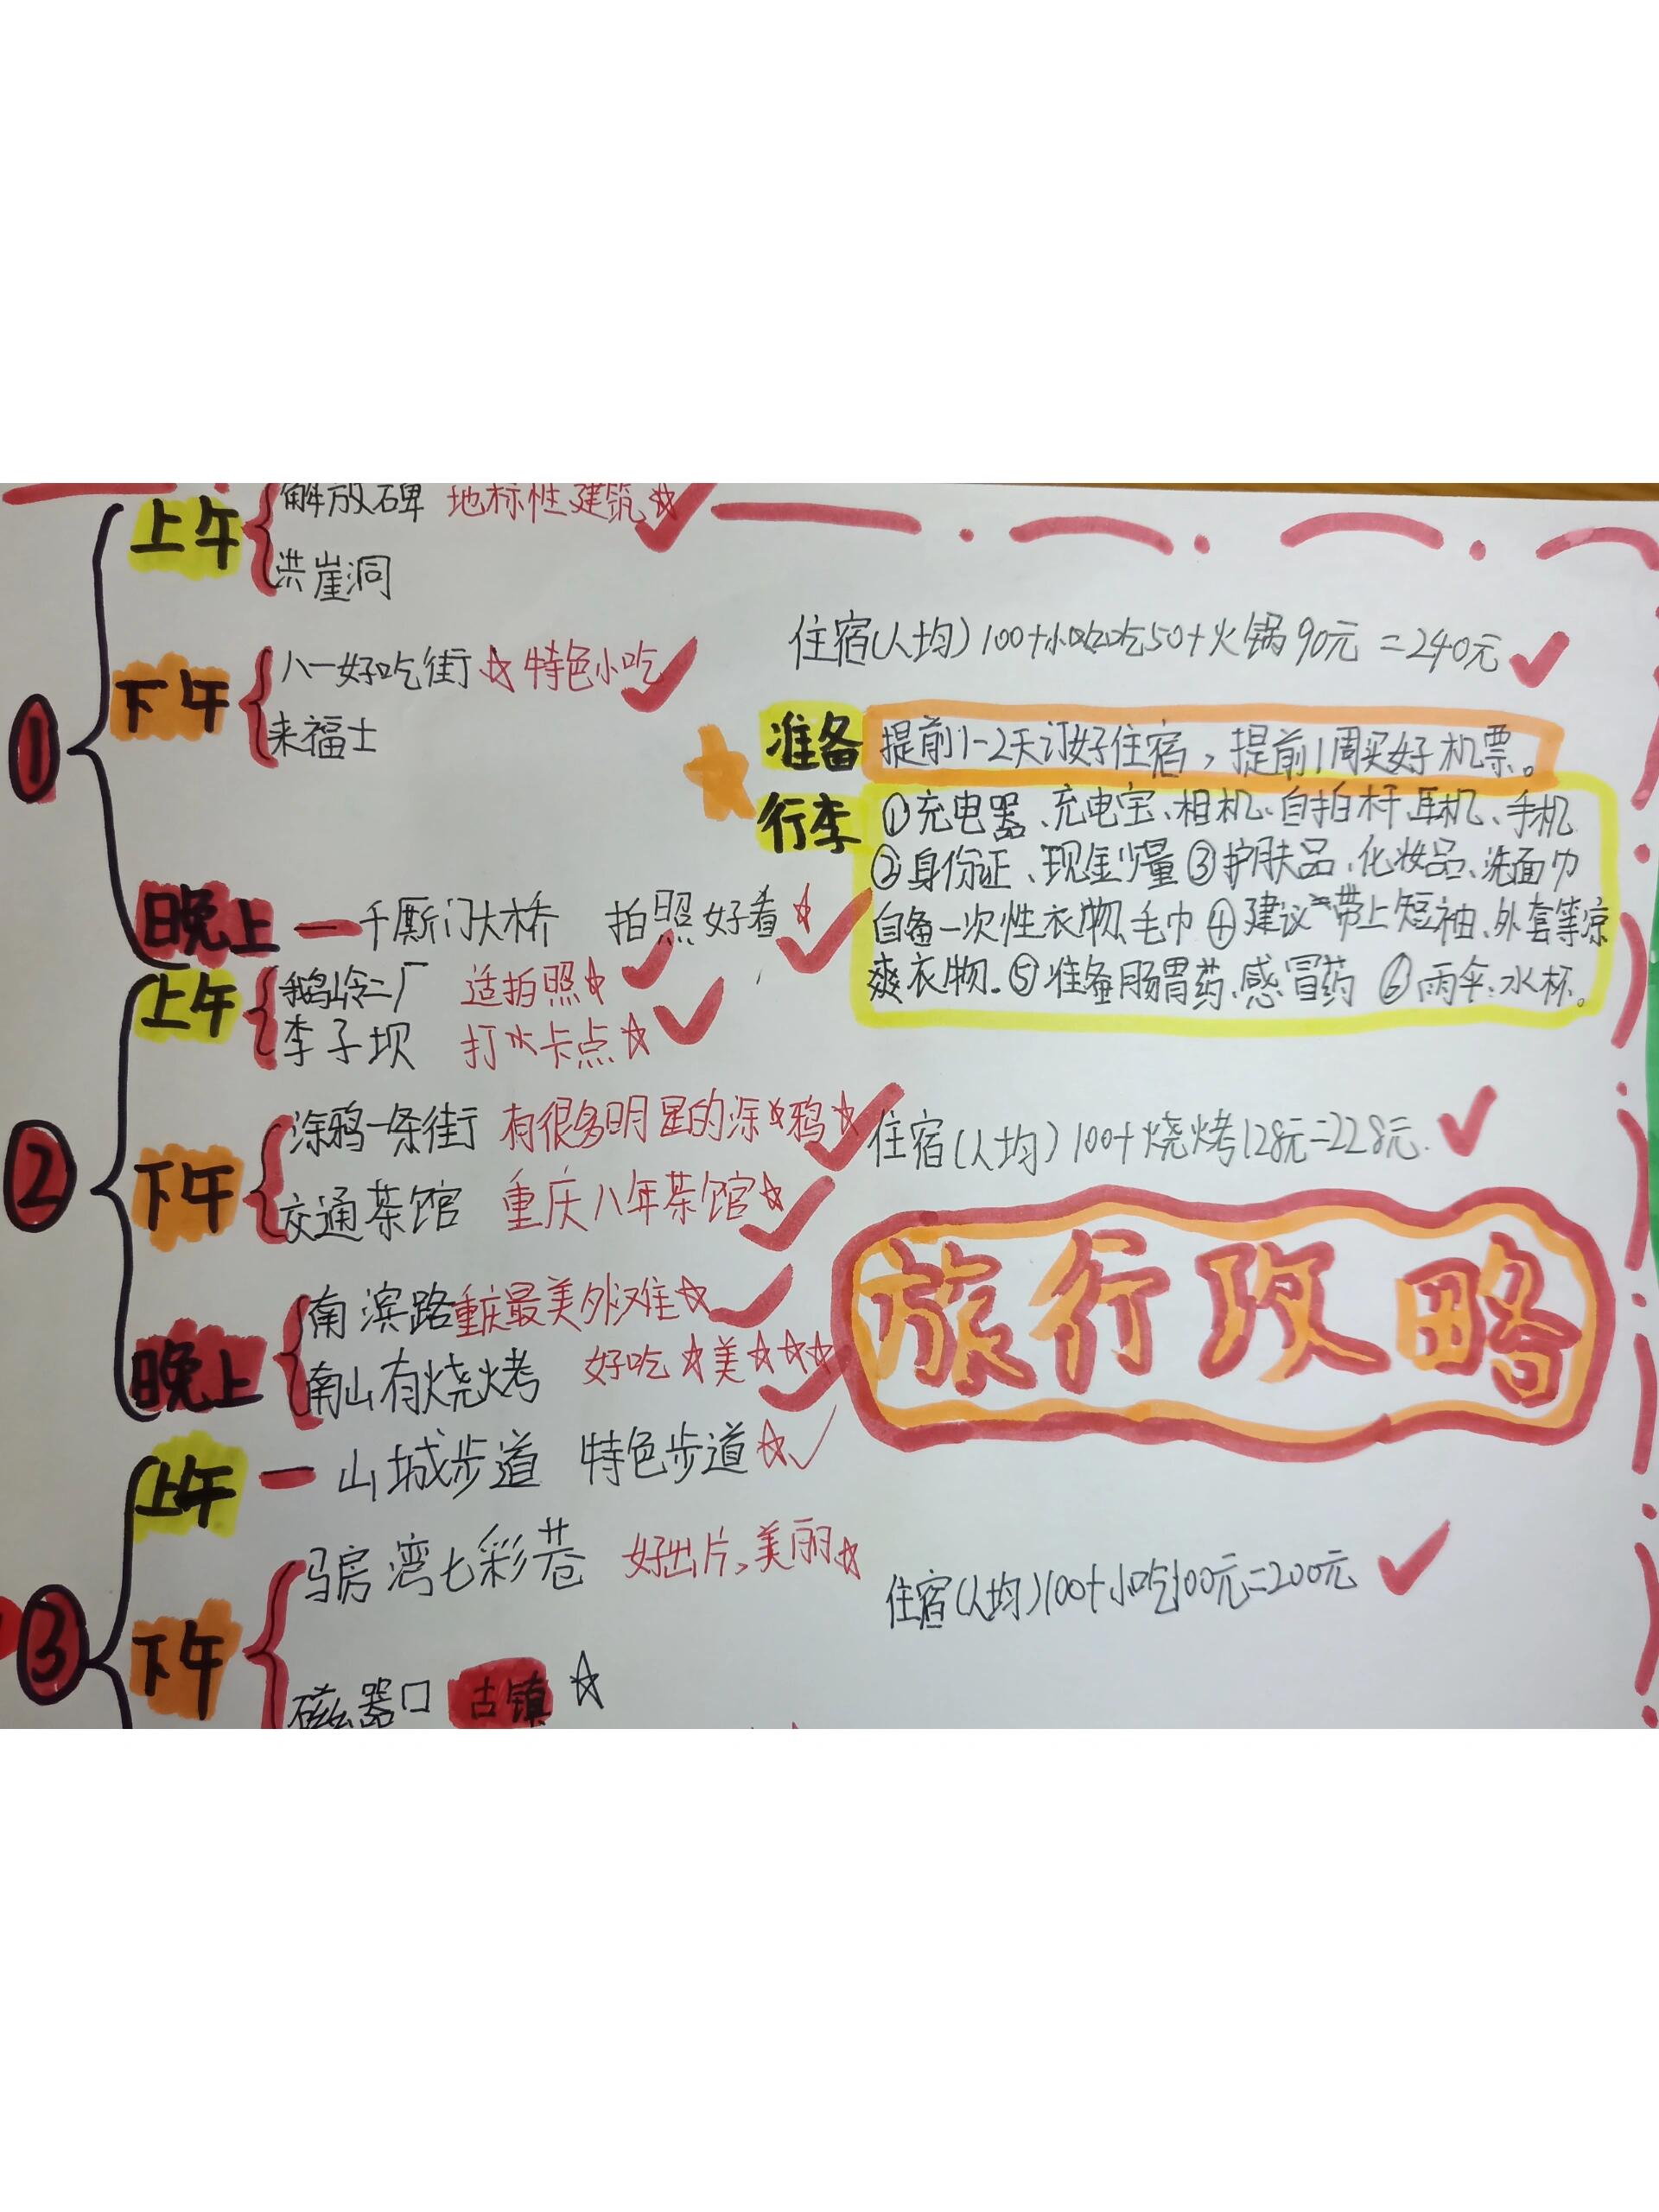 上午 解放碑 地标性建筑
洪崖洞
① 下午 八一好吃街 特色小吃
来福士
晚上 千厮门大桥 拍照好看
住宿(人均)100+小吃50+火锅90元=240元
准备 提前1-2天订好住宿，提前1周买好机票。
行李 ①充电器、充电宝、相机、自拍杆、耳机、手机
②身份证、现金少量③护肤品、化妆品、洗面巾
自备一次性衣物、毛巾④建议带上短袖、外套等凉
爽衣物。⑤准备肠胃药、感冒药 ⑥雨伞、水杯。
上午 鹅岭二厂 适拍照
李子坝 打水卡点
② 下午 涂鸦一条街 有很多明星的涂鸦
交通茶馆 重庆八年茶馆
晚上 南滨路 重庆最美外滩
南山有烧烤 好吃 美
住宿(人均)100+烧烤128元=228元.
旅行攻略
上午 山城步道 特色步道
③ 下午 马房湾七彩巷 好出片、美丽
磁器口 古镇
住宿(人均)100+小吃100元=200元